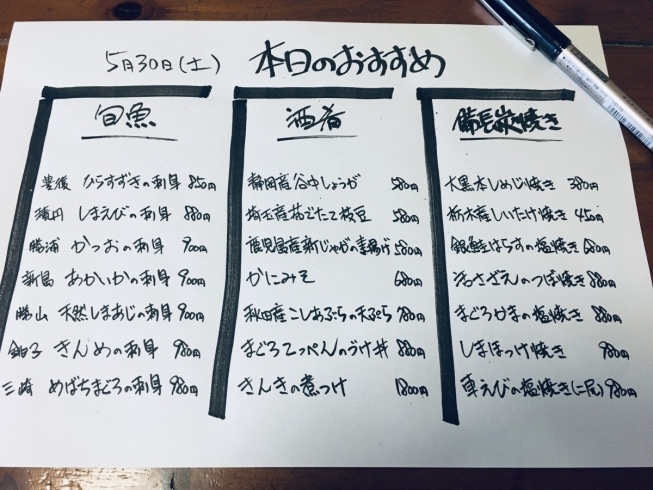 5月30日(土) 本日のおすすめ
旬魚
豊後 ひらすずきの刺身 850円
積丹 しまえびの刺身 880円
勝浦 かつおの刺身 900円
新島 あかいかの刺身 900円
勝山 天然しまあじの刺身 900円
銚子 きんめの刺身 980円
三崎 めばちまぐろの刺身 980円
酒肴
静岡産谷中しょうが 580円
埼玉産茹でたて枝豆 580円
鹿児島産新じゃがの素揚げ 580円
かにみそ 680円
秋田産こしあぶらの天ぷら 780円
まぐろてっぺんのづけ丼 880円
きんきの煮つけ 1800円
備長炭焼き
大黒本しめじ焼き 380円
栃木産しいたけ焼き 450円
銀鮭はらすの塩焼き 680円
活さざえのつぼ焼き 880円
まぐろかまの塩焼き 880円
しまほっけ焼き 980円
車えびの塩焼き(二尾) 980円